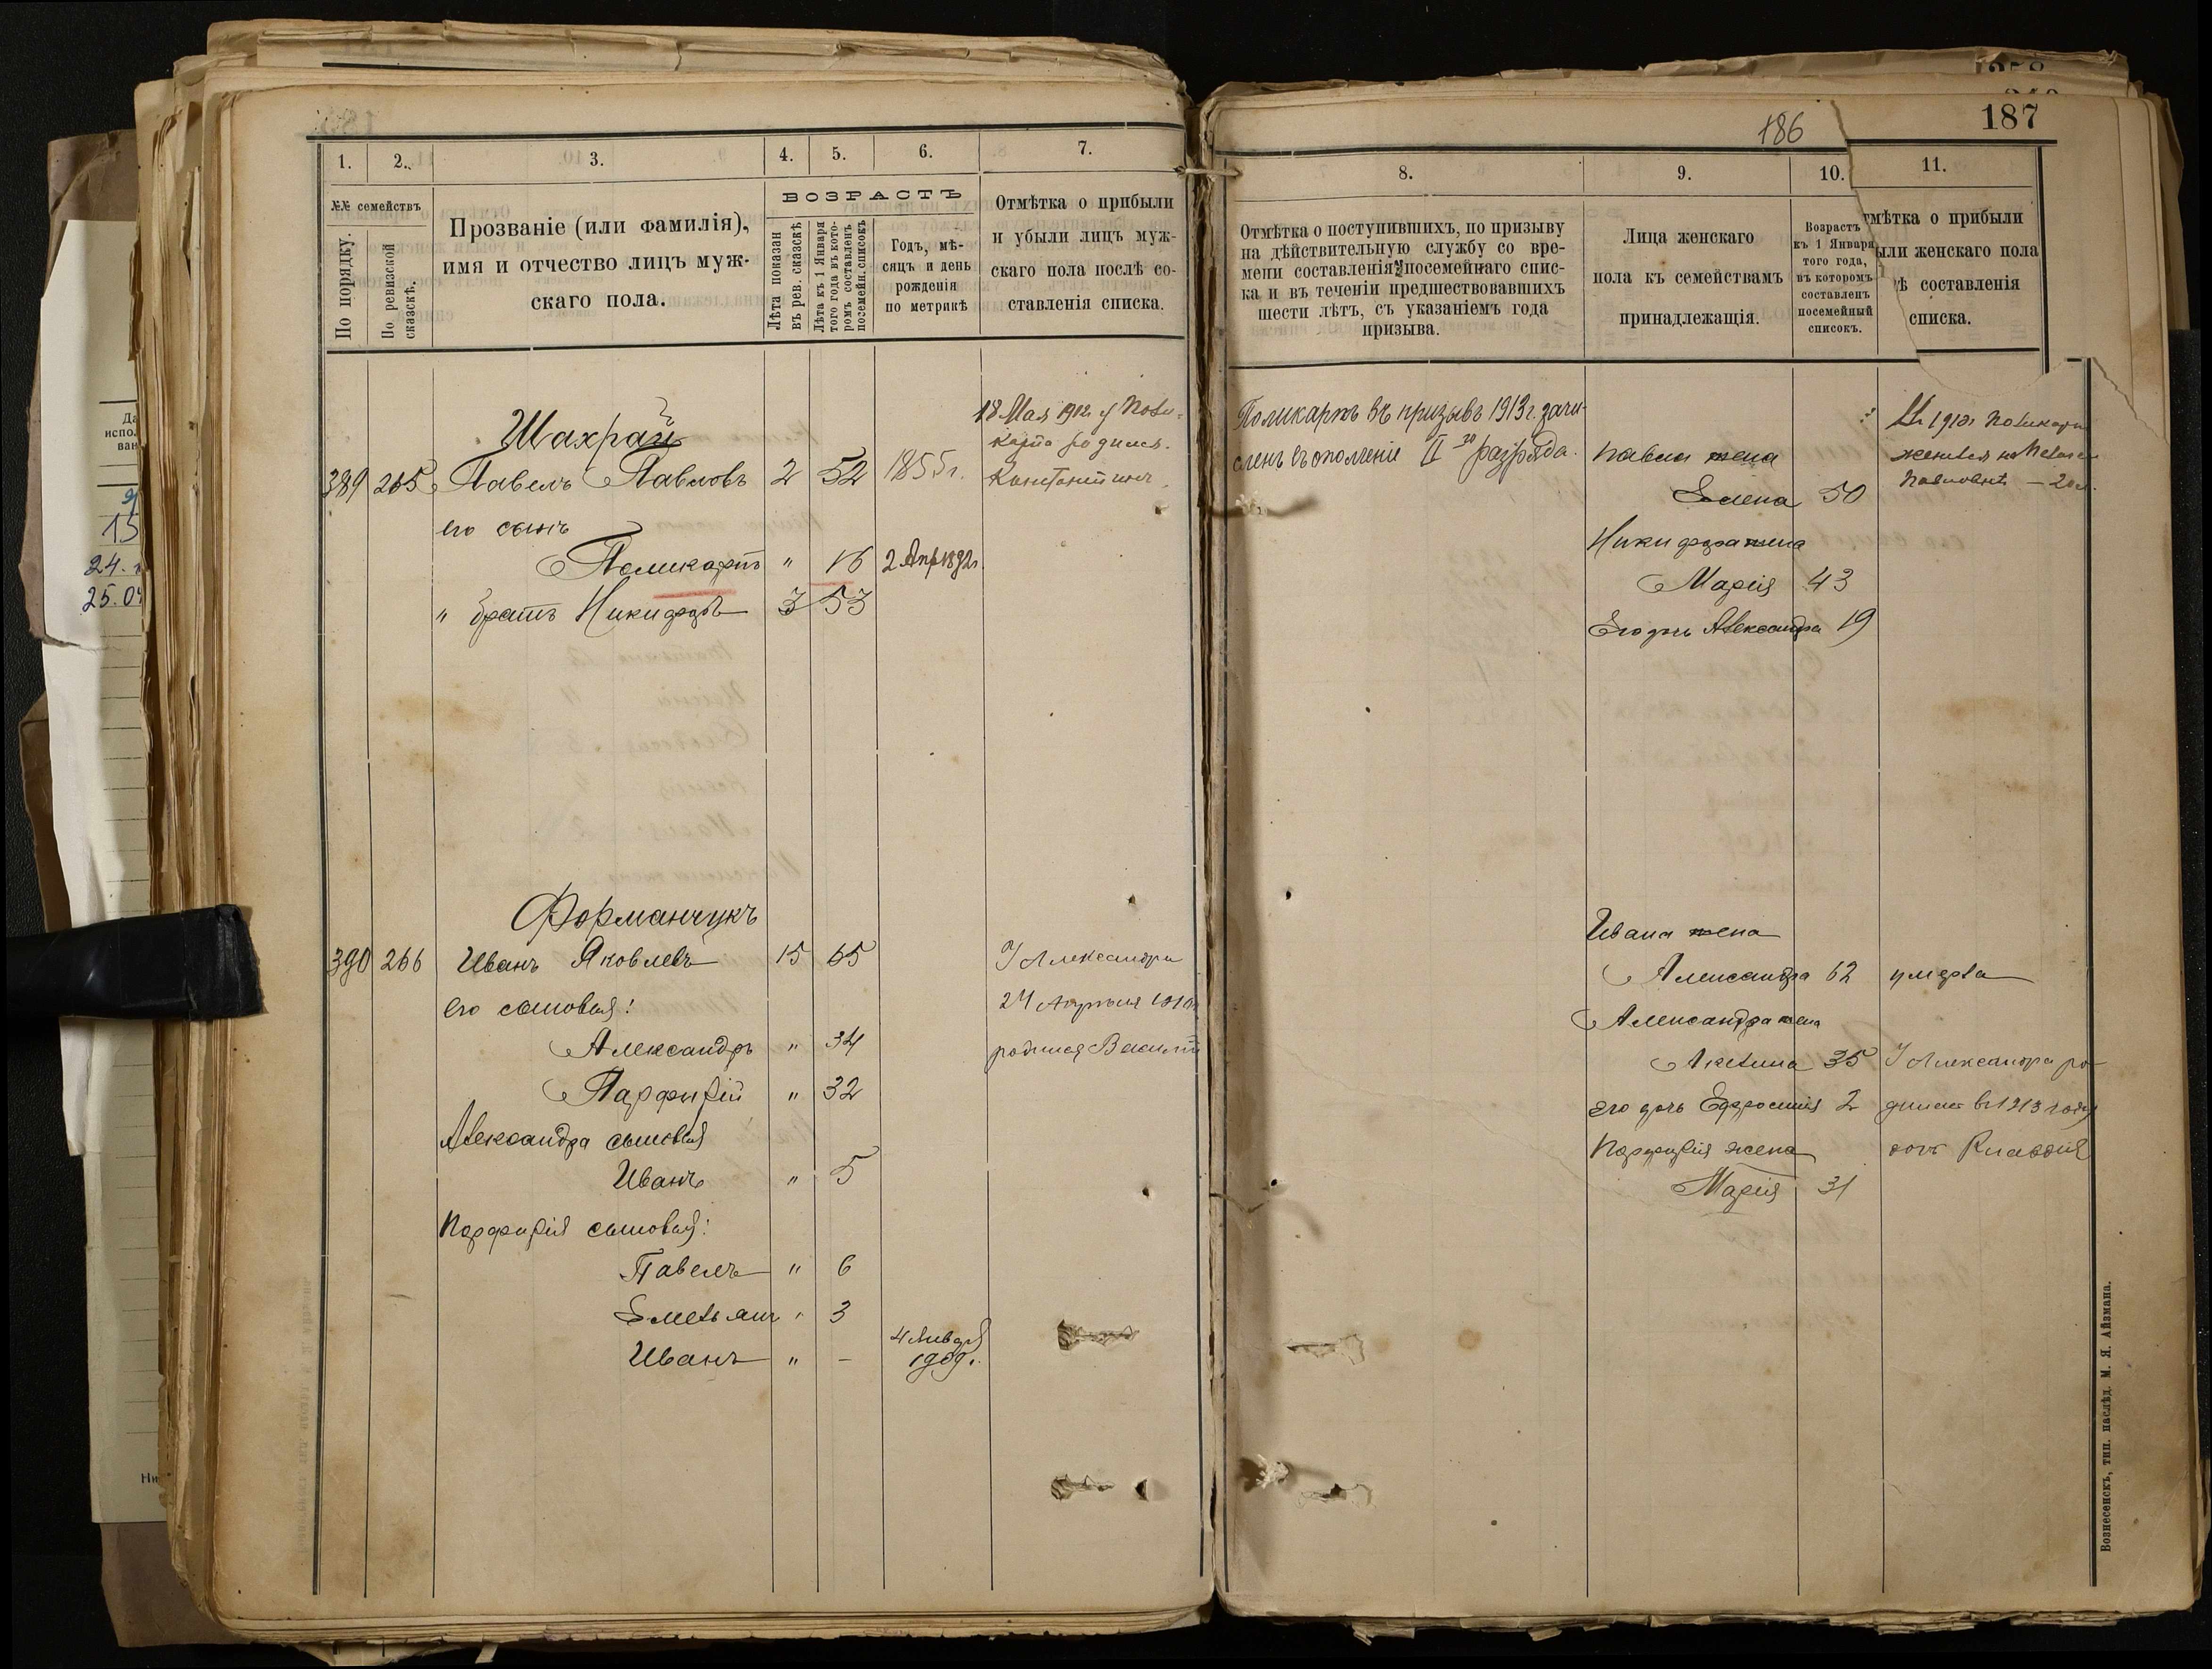 1. 2. 3. 4. 5. 6. 7.
№№ семействъ
По порядку.
По ревизской сказскѣ.
Прозваніе (или фамилія),
имя и отчество лицъ муж-
скаго пола.
ВОЗРАСТЪ
Лѣта показан
въ рев. сказскѣ
Лѣта къ 1 Января
того года въ кото-
ромъ составленъ
посемейн. списокъ
Годъ, мѣ-
сяцъ и день
рожденія
по метрикѣ
Отмѣтка о прибыли
и убыли лицъ муж-
скаго пола послѣ со-
ставленія списка.
Шахрай
18 Мая 1912 г у Поли-
карпа родился
Константинъ
389 265 Павелъ Павловъ 2 52 1855 г.
его сынъ
Поликарпъ " 16 2 Апр 1892 г.
" братъ Никифоръ 3 53
Форманчукъ
390 266 Иванъ Яковлевъ 15 65 У Александра
его сыновья: 24 Апрѣля
Александръ " 34 родился Василій
Парфирій " 32
Александра сыновья
Иванъ " 5
Парфирія сыновья:
Павелъ " 6
Емельянъ " 3
Иванъ " – 4 Января
1909 г.
186
187
8. 9. 10. 11.
Отмѣтка о поступившихъ, по призыву
на дѣйствительную службу со вре-
мени составленія посемейнаго спис-
ка и въ теченіи предшествовавшихъ
шести лѣтъ, съ указаніемъ года
призыва.
Лица женскаго
пола къ семействамъ
принадлежащія.
Возрастъ
къ 1 Января
того года,
въ которомъ
составленъ
посемейный
списокъ.
тмѣтка о прибыли
ыли женскаго пола
ѣ составленія
списка.
Поликарпъ въ призывъ 1913 г. зачи-
сленъ въ ополченіе II го разряда.
Павла жена
Елена 50
Никифора жена
Марія 43
Его дочь Александра 19
Поликарпъ
женился на
Павловнѣ – 20 л.
Ивана жена
Александра 62 умерла
Александра жена
Акелина 35 У Александра ро-
его дочь Ефросинія 2 дилась в 1913 году
Парфирія жена дочь Клавдія
Марія 31
Вознесенскъ, тип. наслѣд. М. Я. Айзмана.